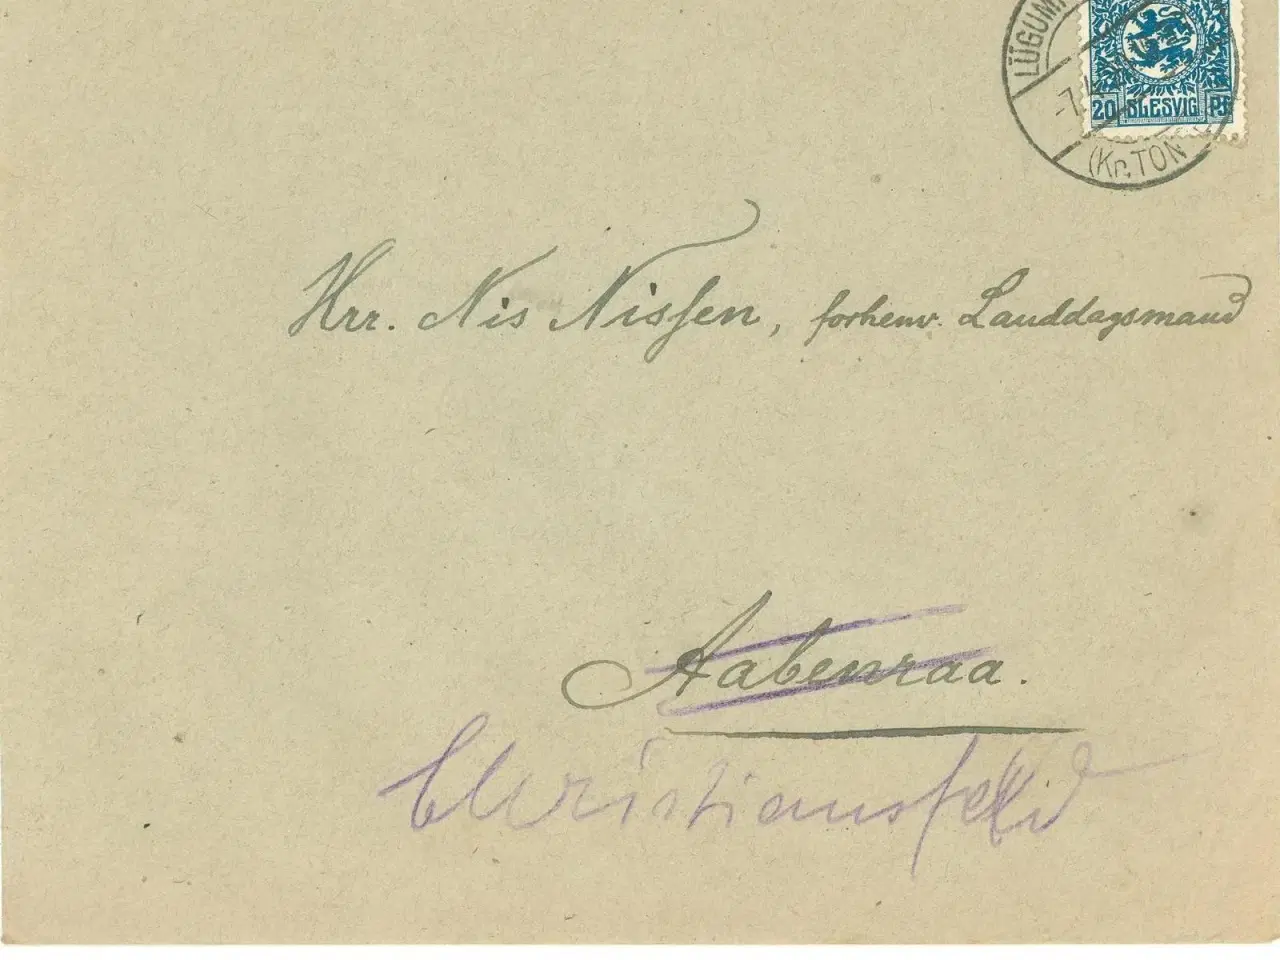 LÜGUM
20 SLESVIG PF
-7.4
(Kr. TON
Hrr. Nis Nissen, forhenv. Landdagsmand
Aabenraa.
Christiansfeld